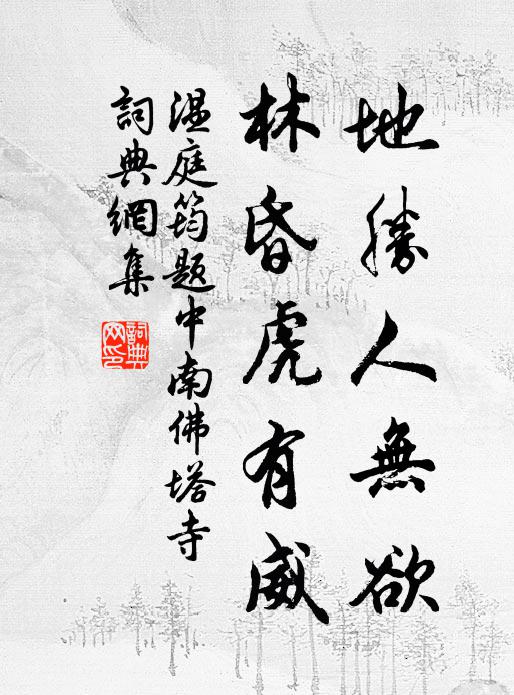 地勝人無欲
林昏虎有威
温庭筠題中南佛塔寺
詞典網集
詞典
网印